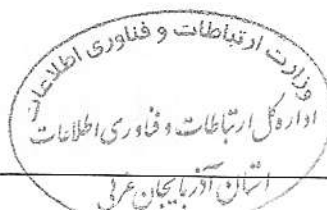 وزارت ارتباطات و فناوری اطلاعات
اداره کل ارتباطات و فناوری اطلاعات
استان آذربایجان غربی